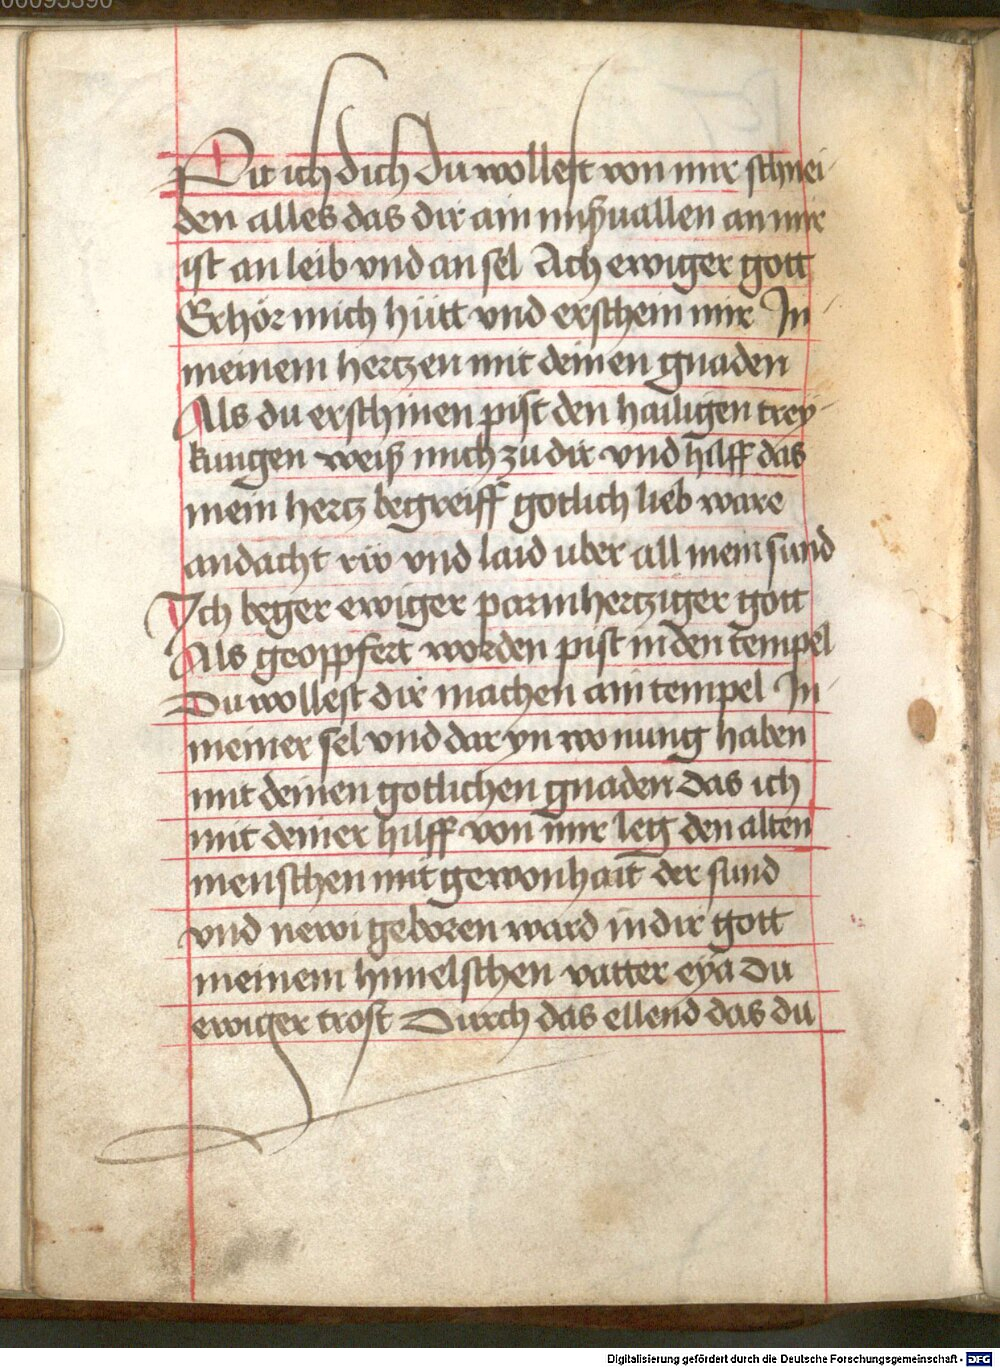 Pit ich dich Du wollest von mir schnei
den alles das dir ain mißuallen an mir
ist an leib vnd an sel Ach ewiger gott
Erhör mich hütt vnd erschein mir In
meinem hertzen mit deinen gnaden
Als du erschinen pist den hailigen trey
kungen weiß mich zu dir vnd hilff das
mein hertz begreiff gotlich lieb ware
andacht rw vnd laid uber all mein sund
Ich beger ewiger parmhertziger gott
Als geopfert worden pist in den tempel
Du wollest dir machen ain tempel In
meiner sel vnd dar yn wonung haben
mit deinen gotlichen gnaden das ich
mit deiner hilff von mir leg den alten
menschen mit gewonhait der sund
vnd new geboren ward in dir gott
meinem himelschen vatter eya du
ewiger trost Durch das ellend das du
Digitalisierung gefördert durch die Deutsche Forschungsgemeinschaft - DFG